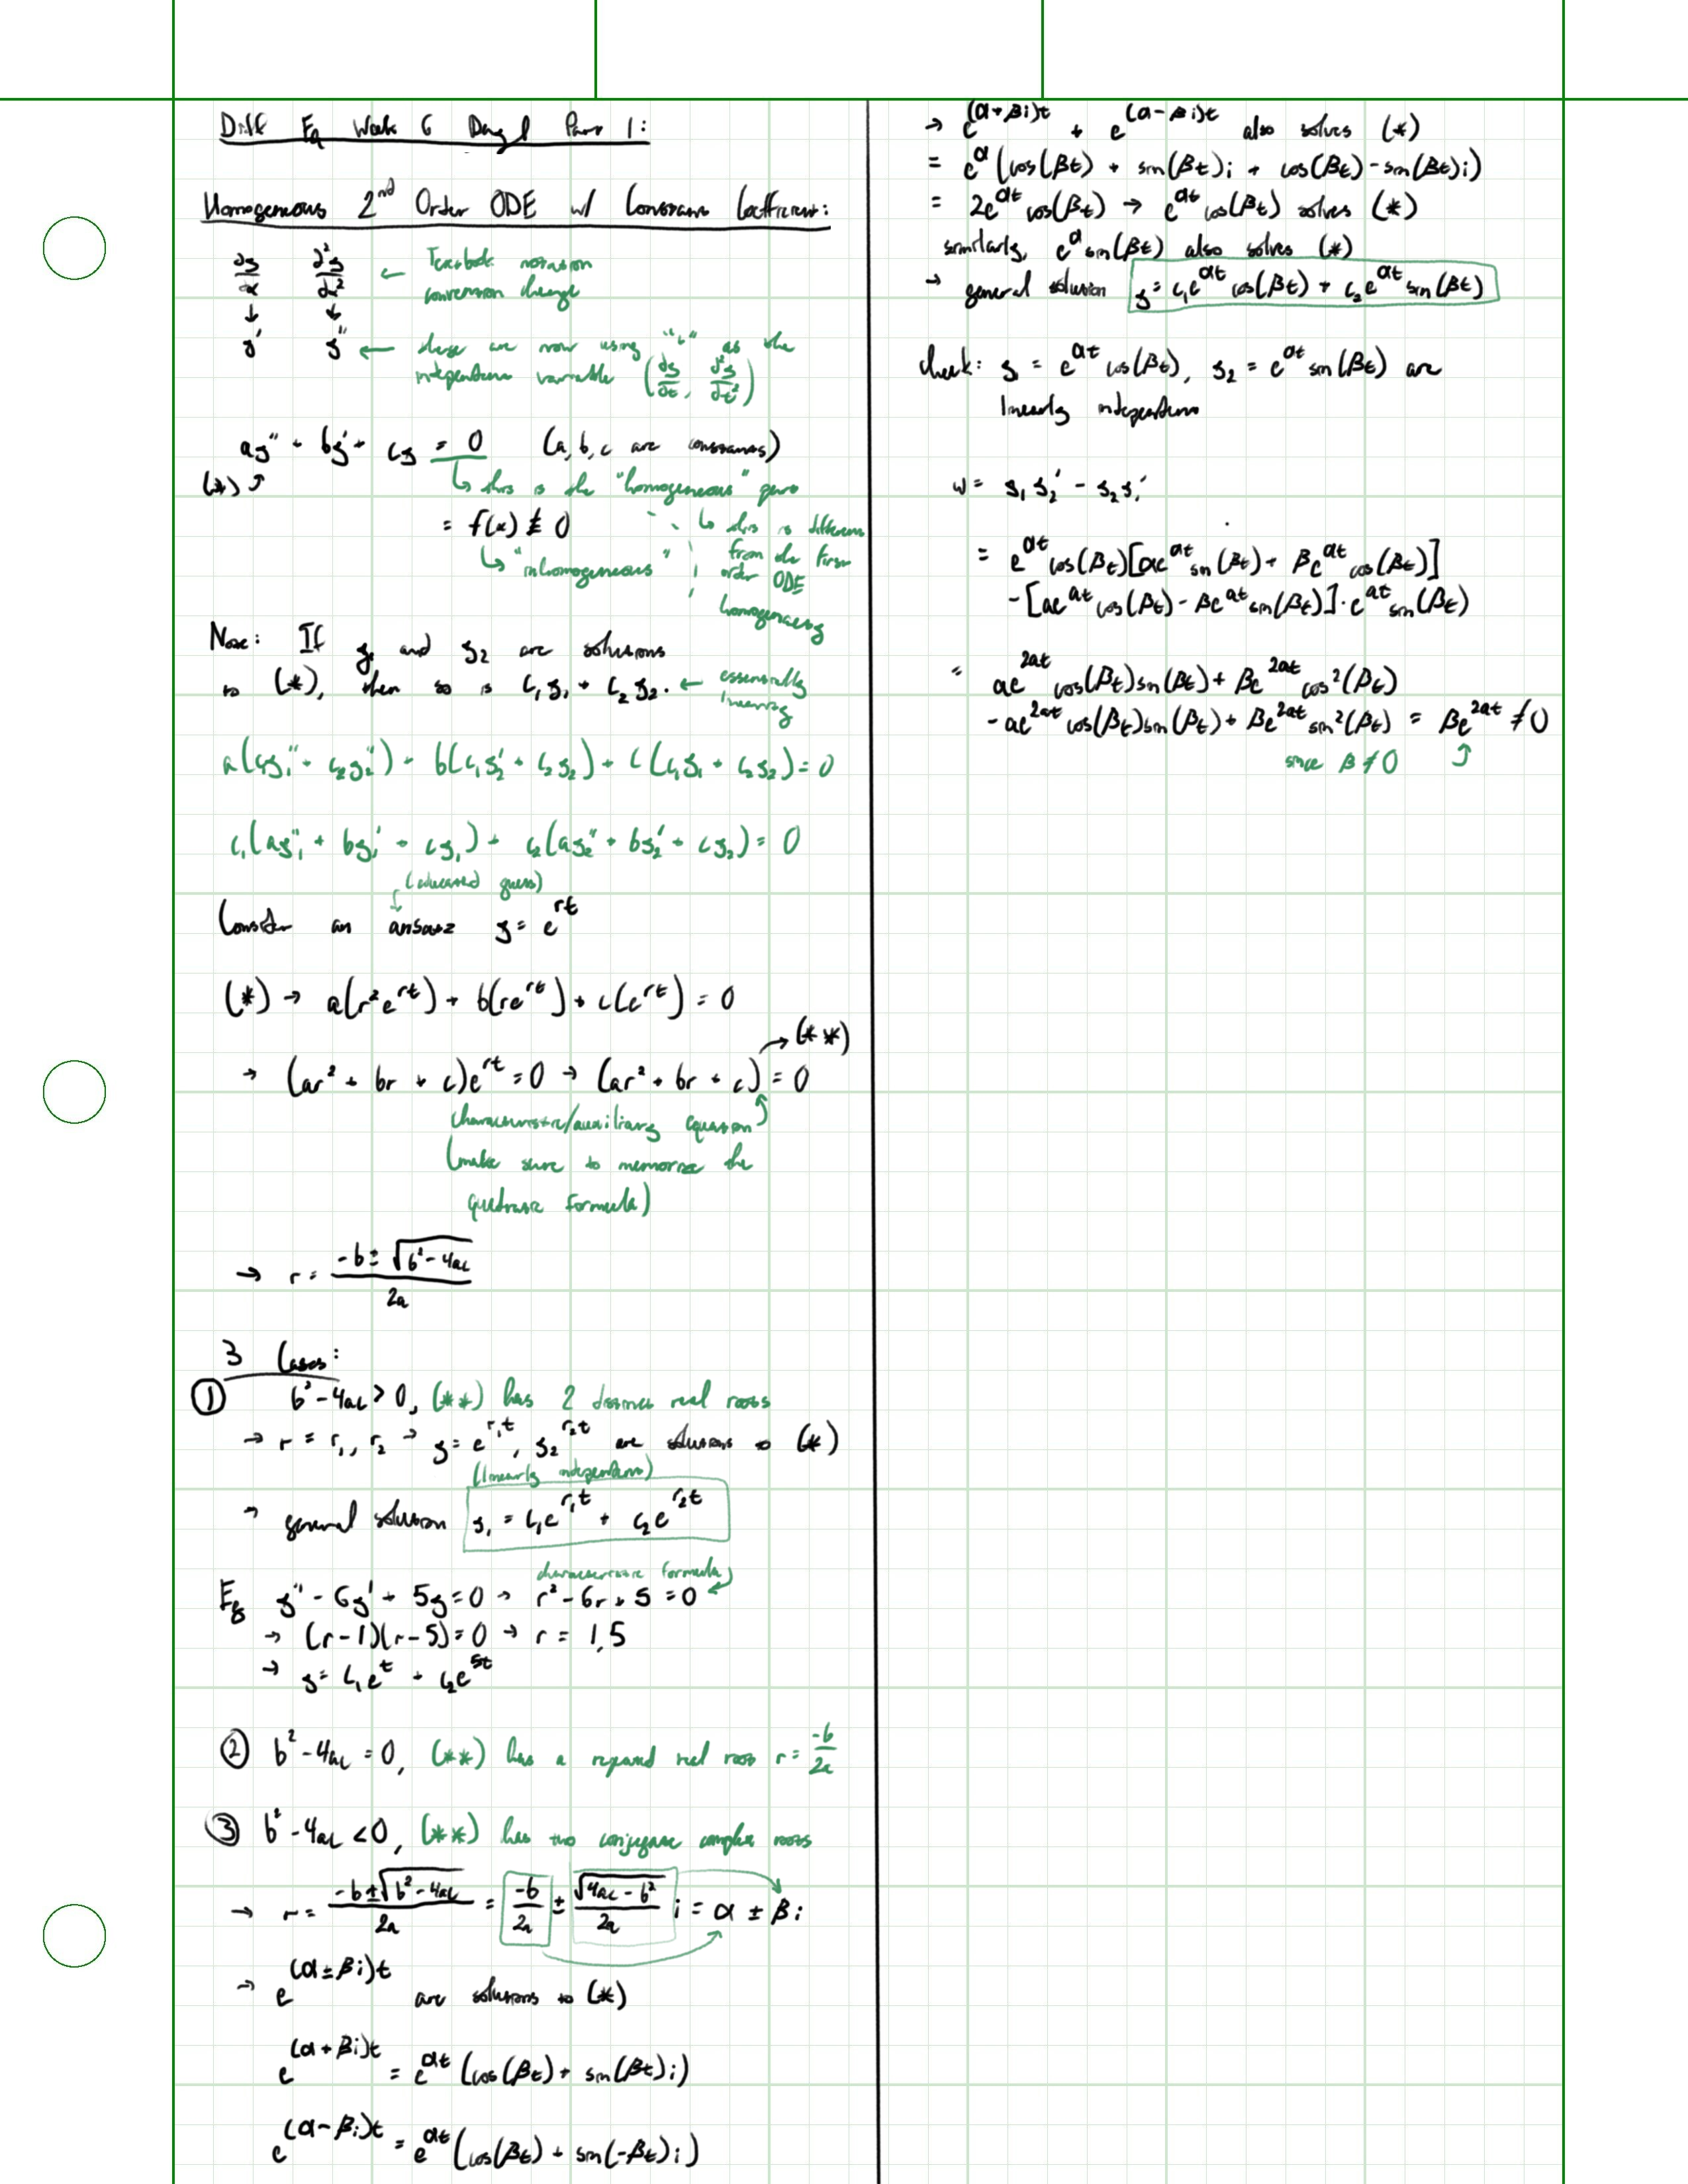 Diff Eq Week 6 Day 1 Part 1:
Homogeneous 2nd Order ODE w/ Constant Coefficient:
∂y/∂x ∂²y/∂x² ← Textbook notation
convention change
↓ ↓
y' y'' ← these are now using "t" as the
independent variable (dy/dt, d²y/dt²)
ay'' + by' + cy = 0 (a, b, c are constants)
(*) ↑ ↳ this is the "homogeneous" part
= f(x) ≢ 0 ↳ this is different
↳ "inhomogeneous" from the first
order ODE
homogeneity
Note: If y₁ and y₂ are solutions
to (*), then so is c₁y₁ + c₂y₂. ← essentially
linearity
a(c₁y₁'' + c₂y₂'') + b(c₁y₂' + c₂y₂) + c(c₁y₁ + c₂y₂) = 0
c₁(ay₁'' + by₁' + cy₁) + c₂(ay₂'' + by₂' + cy₂) = 0
(educated guess)
Consider an ansatz y = e^(rt)
(*) → a(r²e^(rt)) + b(re^(rt)) + c(e^(rt)) = 0
→ (**)
→ (ar² + br + c)e^(rt) = 0 → (ar² + br + c) = 0
characteristic/auxiliary equation
(make sure to memorize the
quadratic formula)
→ r = (-b ± √(b² - 4ac))/2a
3 Cases:
① b² - 4ac > 0, (**) has 2 distinct real roots
→ r = r₁, r₂ → y = e^(r₁t), y₂^(r₂t) are solutions to (*)
(linearly independent)
→ general solution y₁ = c₁e^(r₁t) + c₂e^(r₂t)
characteristic formula
Eg y'' - 6y' + 5y = 0 → r² - 6r + 5 = 0
→ (r - 1)(r - 5) = 0 → r = 1, 5
→ y = c₁e^t + c₂e^(5t)
② b² - 4ac = 0, (**) has a repeated real root r = -b/2a
③ b² - 4ac < 0, (**) has two conjugate complex roots
→ r = (-b ± √(b² - 4ac))/2a = -b/2a ± √(4ac - b²)/2a i = α ± βi
→ e^((α ± βi)t) are solutions to (*)
e^((α + βi)t) = e^(αt) (cos(βt) + sin(βt)i)
e^((α - βi)t) = e^(αt) (cos(βt) + sin(-βt)i)
→ e^((α + βi)t) + e^((α - βi)t) also solves (*)
= e^α (cos(βt) + sin(βt)i + cos(βt) - sin(βt)i)
= 2e^(αt) cos(βt) → e^(αt) cos(βt) solves (*)
similarly, e^α sin(βt) also solves (*)
→ general solution y = c₁e^(αt) cos(βt) + c₂e^(αt) sin(βt)
check: y₁ = e^(αt) cos(βt), y₂ = e^(αt) sin(βt) are
linearly independent
W = y₁y₂' - y₂y₁'
= e^(αt) cos(βt)[αe^(αt) sin(βt) + βe^(αt) cos(βt)]
- [αe^(αt) cos(βt) - βe^(αt) sin(βt)] · e^(αt) sin(βt)
= αe^(2αt) cos(βt)sin(βt) + βe^(2αt) cos²(βt)
- αe^(2αt) cos(βt)sin(βt) + βe^(2αt) sin²(βt) = βe^(2αt) ≠ 0
since β ≠ 0 ↑